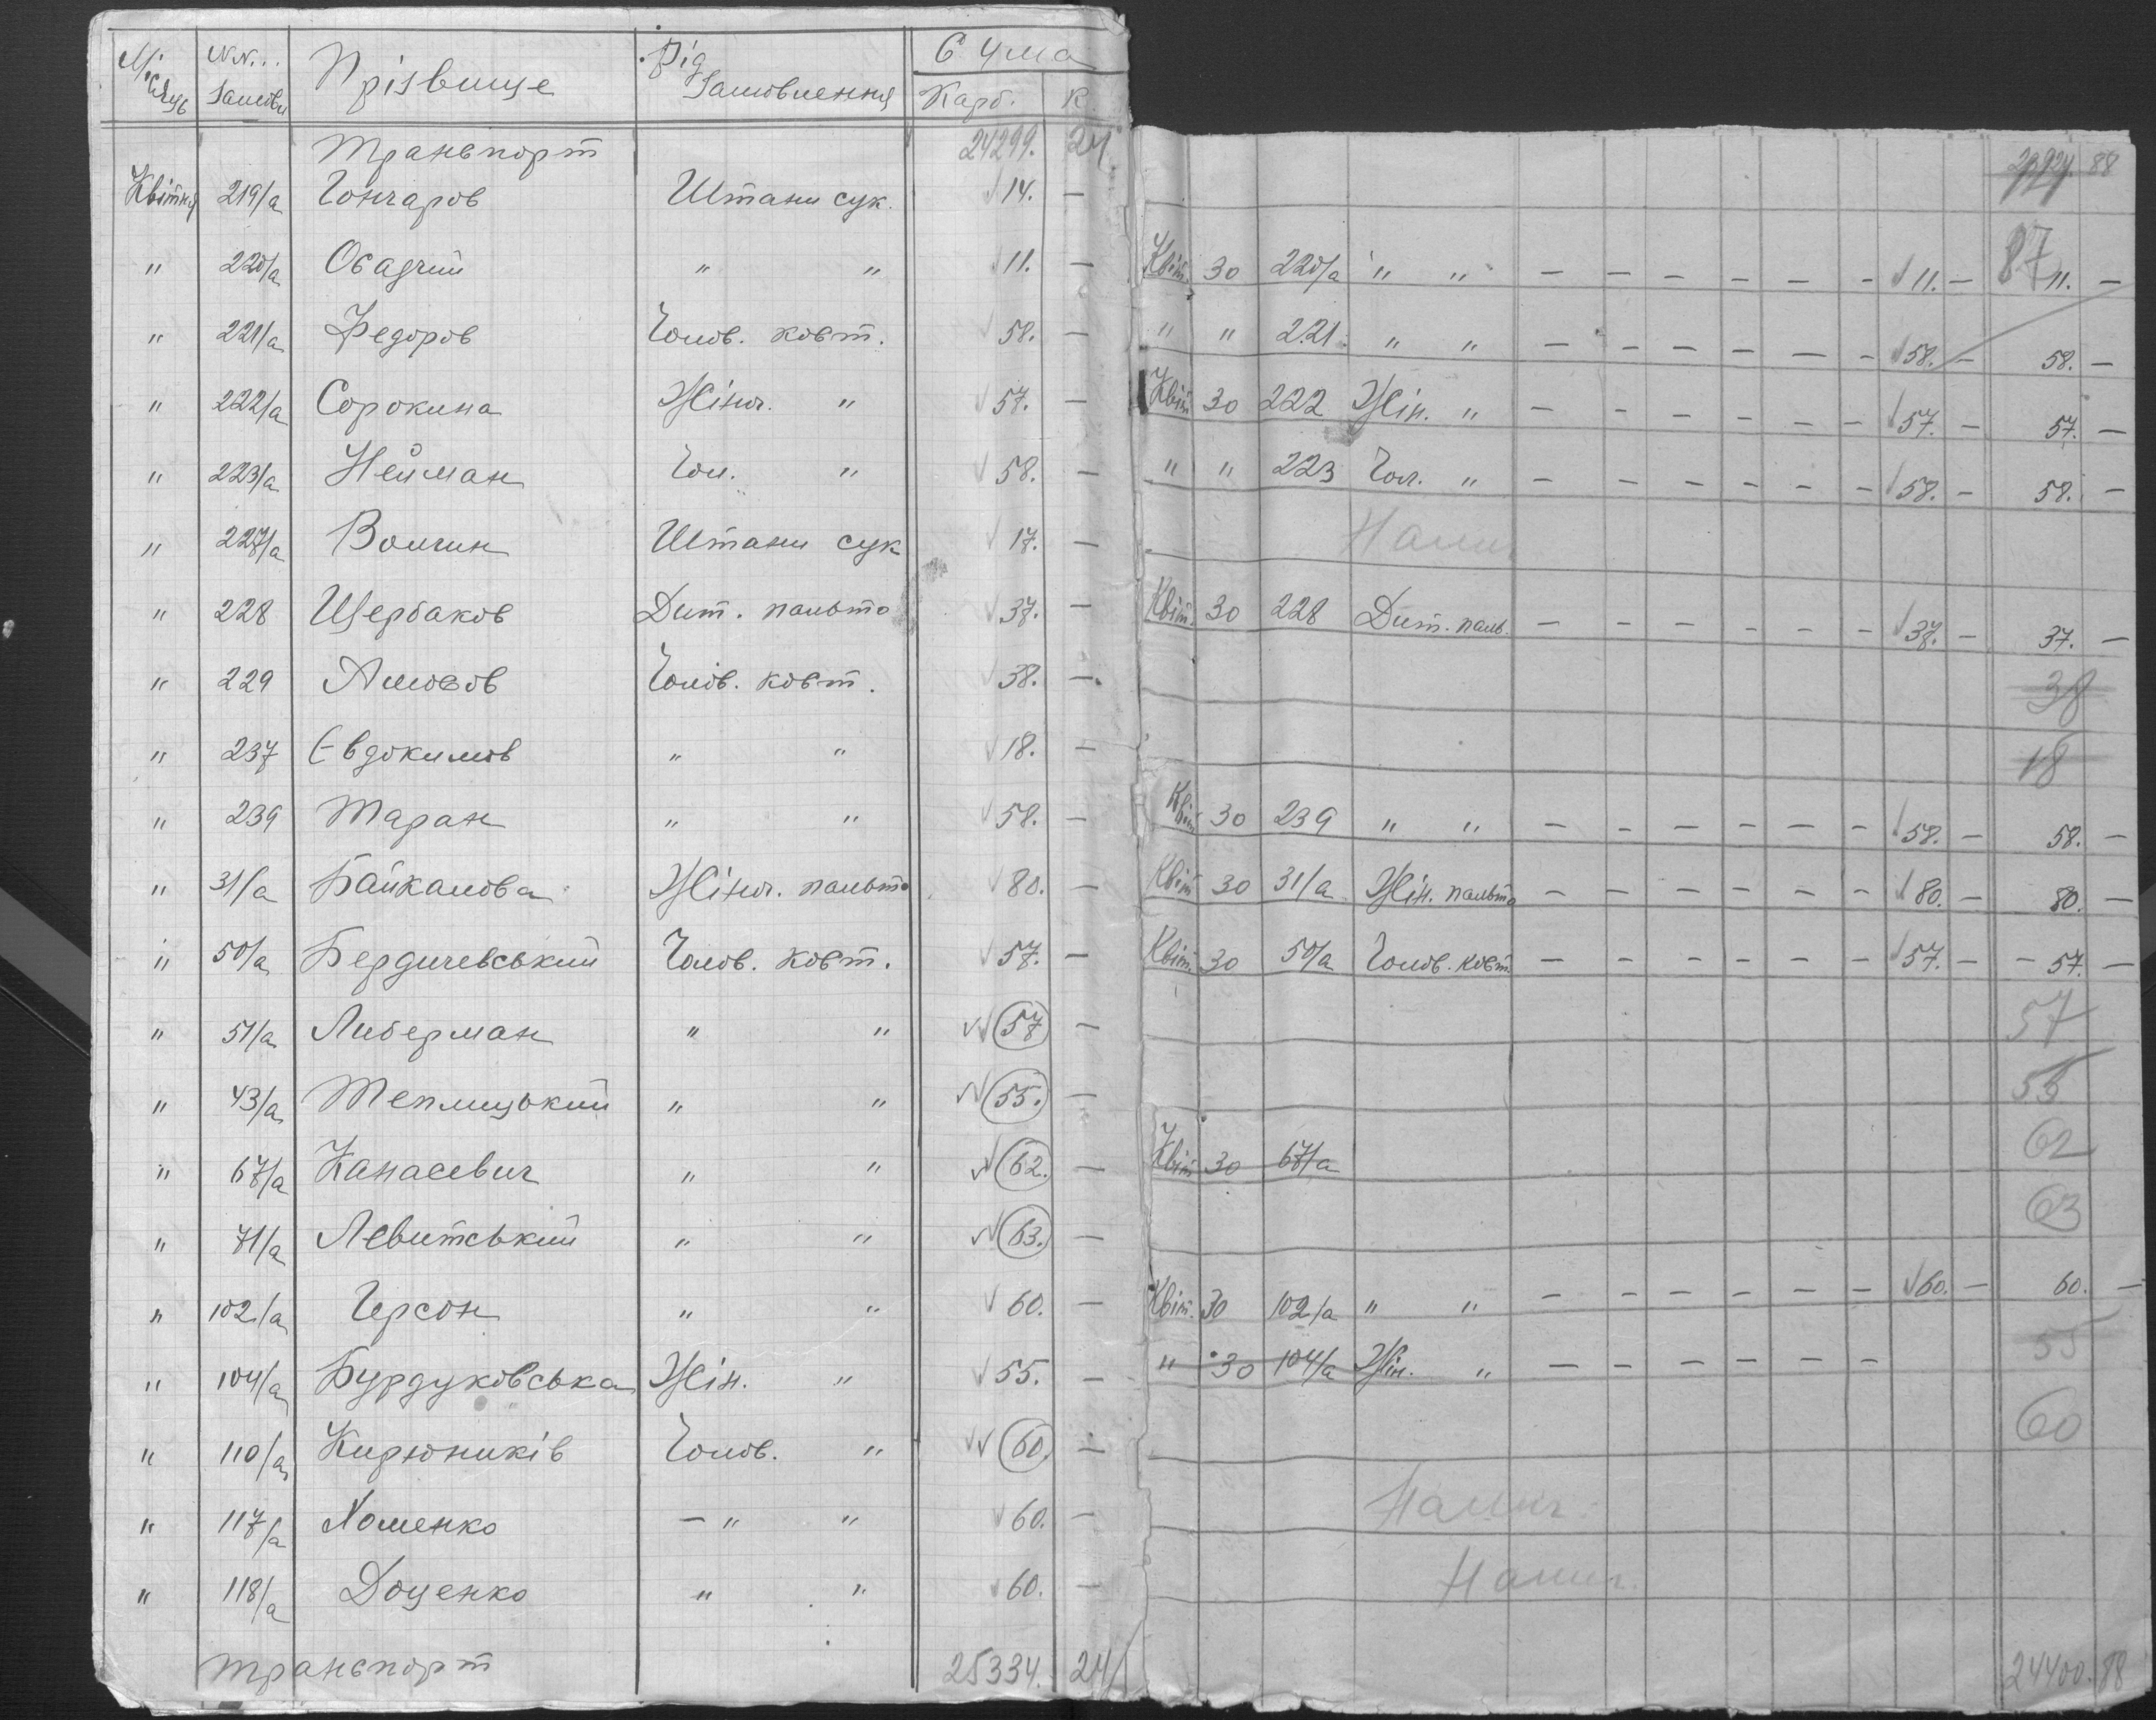 Місяць NN... Замовл Прізвище Рід Замовлення Сума
Карб. К.
Транспорт 24299. 24.
Квітня 219/а Гончаров Штани сук. 14. —
" 220/а Осадчий " " 11. —
" 221/а Федоров Чолов. кост. 58. —
" 222/а Сорокина Жіноч. " 57. —
" 223/а Нейман Чол. " 58. —
" 227/а Волчин Штани сук 17. —
" 228 Щербаков Дит. пальто 37. —
" 229 Амосов Чолов. кост. 38. —
" 237 Євдокимов " " 18. —
" 239 Таран " " 58. —
" 31/а Байкалова Жіноч. пальто 80. —
" 50/а Бердичевський Чолов. кост. 57. —
" 51/а Либерман " " 57 —
" 43/а Теплицький " " 55. —
" 67/а Канасевич " " 62. —
" 71/а Левитський " " 63. —
" 102/а Герсон " " 60. —
" 104/а Бурдуковська Жін. " 55. —
" 110/а Кирюников Чолов. " 60. —
" 117/а Хоменко — " " 60. —
" 118/а Доценко " " 60. —
транспорт 25334. 24
88
87
Квіт. 30 220/а " " — — — — — — 11. — 11. —
" " 221. " " — — — — — — 58. — 58. —
Квіт 30 222 Жін. " — — — — — — 57. — 57. —
" " 223 Чол. " — — — — — — 58. — 58. —
Налич
Квіт. 30 228 Дит. паль. — — — — — — 37. — 37. —
38
18
Квіт 30 239 " " — — — — — — 58. — 58. —
Квіт 30 31/а Жін. пальто — — — — — — 80. — 80. —
Квіт. 30 50/а Чолов. кост. — — — — — — 57. — — 57. —
57
55
Квіт 30 67/а 62
63
Квіт. 30 102/а " " — — — — — — 60. — 60. —
" 30 104/а Жін. " — — — — — — 55
60
Налич.
Налич.
24400. 88